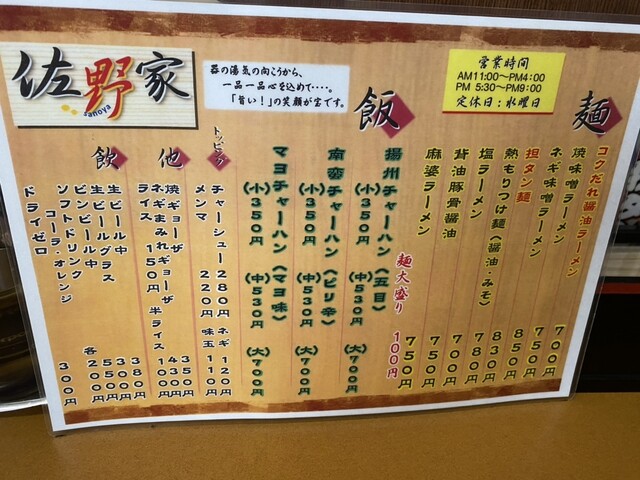 佐野家
sanoya
器の湯気の向こうから、
一品一品心を込めて‥‥。
「旨い!」の笑顔が宝です。
営業時間
AM11:00~PM4:00
PM 5:30~PM9:00
定休日:水曜日
麺
コクだれ醤油ラーメン 700円
焼味噌ラーメン 750円
ネギ味噌ラーメン 850円
担タン麺 830円
熱もりつけ麺(醤油・みそ) 780円
塩ラーメン 700円
背油豚骨醤油 750円
麻婆ラーメン 750円
麺大盛り 100円
飯
揚州チャーハン(五目)
(小)350円 (中)530円 (大)700円
南蛮チャーハン(ピリ辛)
(小)350円 (中)530円 (大)700円
マヨチャーハン(マヨ味)
(小)350円 (中)530円 (大)700円
トッピング
チャーシュー280円 ネギ120円
メンマ 220円 味玉110円
他
焼ギョーザ 350円
ネギまみれギョーザ 430円
ライス 150円 半ライス100円
飲
生ビール中 380円
生ビールグラス 300円
ビンビール中 550円
ソフトドリンク 各200円
コーラ・オレンジ
ドライゼロ 300円